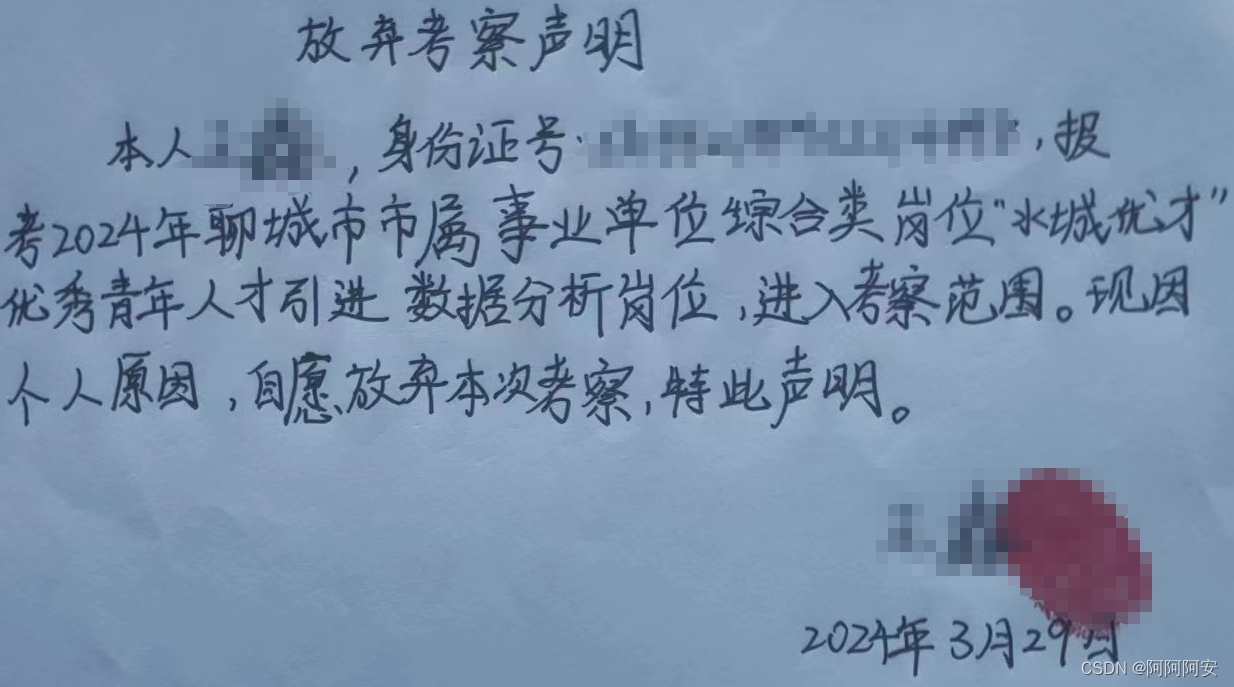 放弃考察声明
本人,身份证号:,报
考2024年聊城市市属事业单位综合类岗位“水城优才”
优秀青年人才引进数据分析岗位,进入考察范围。现因
个人原因,自愿放弃本次考察,特此声明。
2024年3月29日
CSDN @阿阿阿安